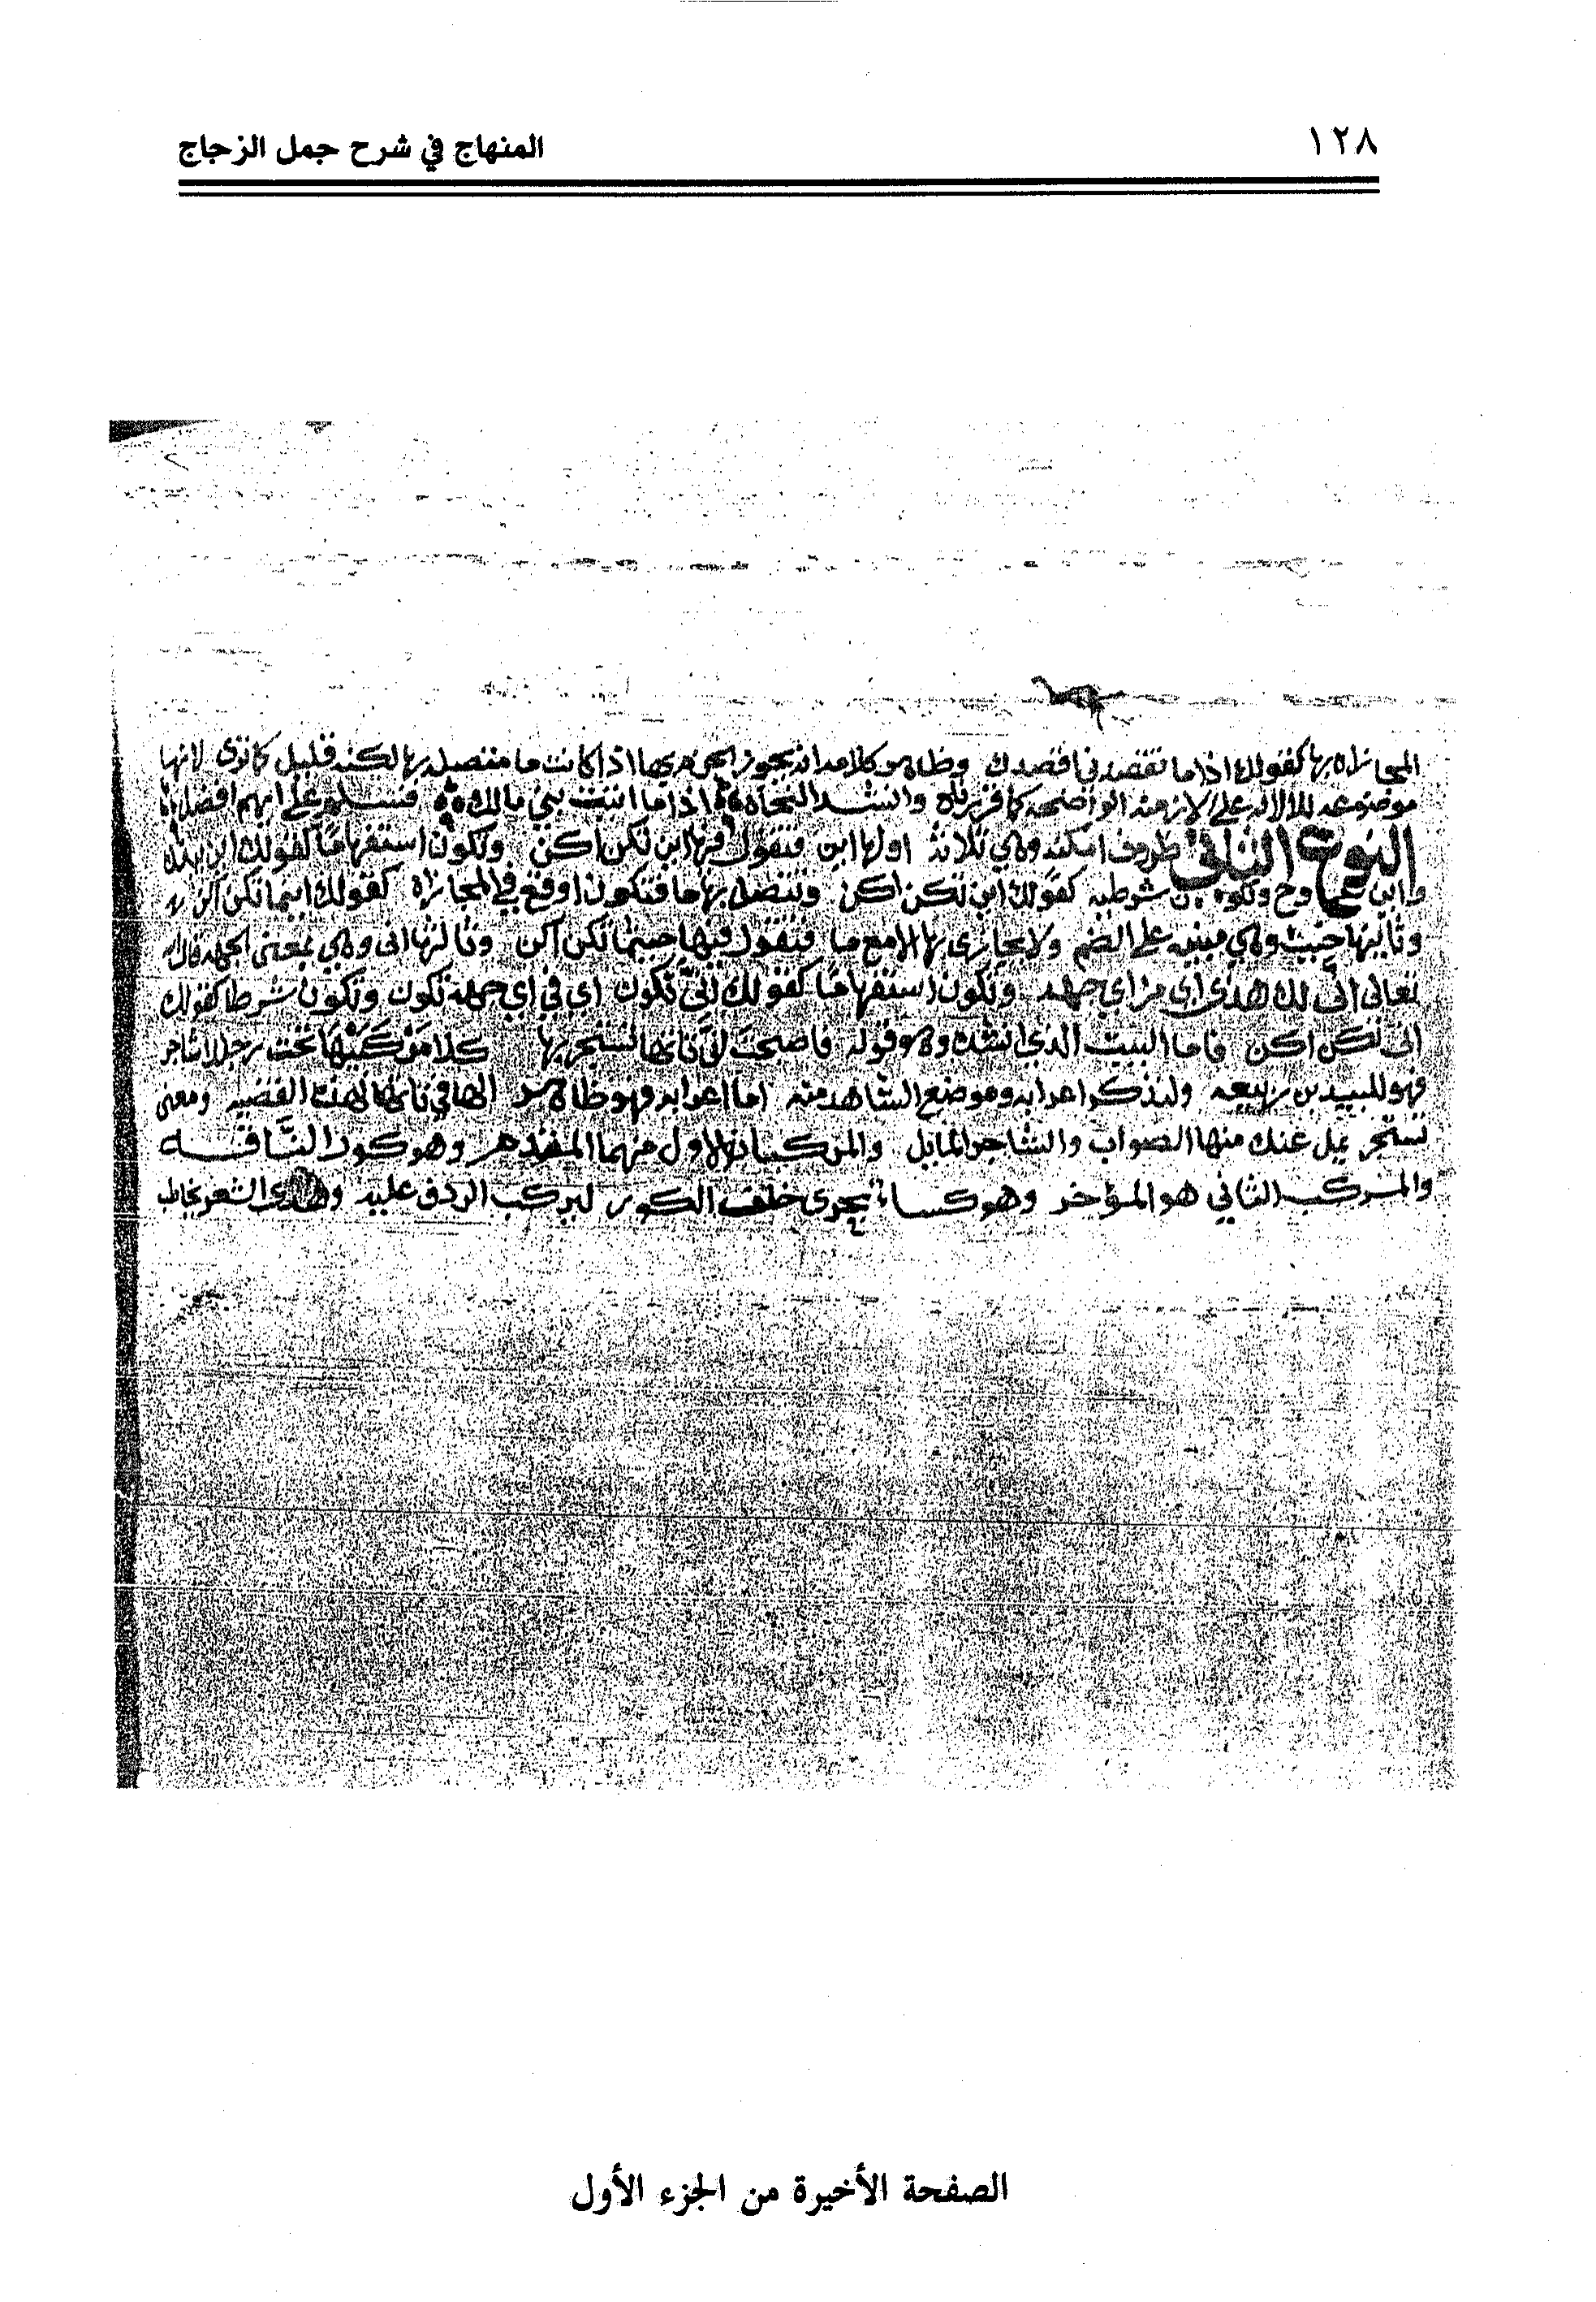 ١٢٨
المنهاج في شرح جمل الزجاج
المجازاه بها كقولك اذا ما تقصدني اقصدك وظاهر كلامه انه يجوز الجزم بها اذا كانت ما متصله بها لكنه قليل كما ترى لانها
موضوعه للدلاله على الازمنه الواضحه كما قررناه وانشد النحاه اذا ما اتيت بني مالك فسلم على ايهم افضل
النوع الثاني ظروف امكنه وهي ثلاثه اولها اين فتقول فيها اين تكن اكن وتكون استفهامًا كقولك اين
واين وتكون شرطيه كقولك اين تكن اكن وتتصل بها ما فتكون اوقع في المجازاه كقولك اينما تكن اكن
وثانيها حيث وهي مبنيه على الضم ولا يجازى بها الا مع ما فتقول فيها حيثما تكن اكن وثالثها انى وهي بمعنى الجهه قال الله
تعالى انّى لك هذا اي من اي جهه وتكون استفهامًا كقولك انّى تكون اي في اي جهه تكون وتكون شرطا كقولك
انى تكن اكن فاما البيت الذي انشده وهو قوله فاصبحت انّى تاتها تستجر بها كلا مركبيها تحت رجلك شاجر
فهو للبيد بن ربيعه ولنذكر اعرابه وموضع الشاهد منه اما اعرابه فهو ظاهر الها في تاتها لهذه القضيه ومعنى
تستجر يمل عنك منها الصواب والشاجر المايل والمركبان الاول منهما المقدم وهو كور الناقـــه
والمركب الثاني هو المؤخر وهو كساء يحوى خلف الكور ليركب الردف عليه وهذا الشعر يخاطب
الصفحة الأخيرة من الجزء الأول